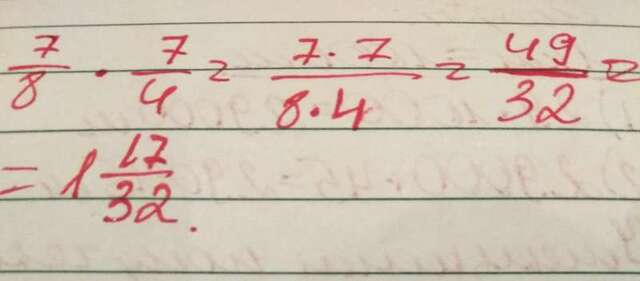 7/8 · 7/4 = 7·7/8·4 = 49/32 =
= 1 17/32.